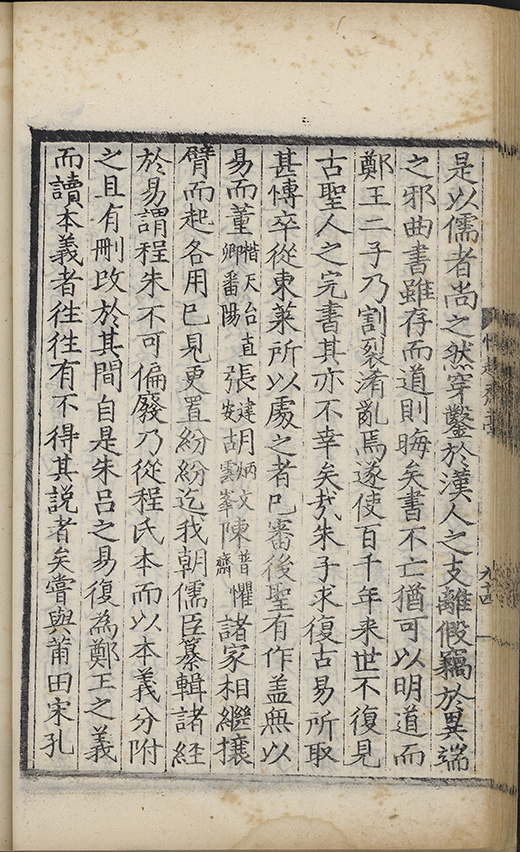 是以儒者尚之然穿鑿於漢人之支離假竊於異端
之邪曲書雖存而道則晦矣書不亡猶可以明道而
鄭王二子乃割裂淆亂焉遂使百千年来世不復見
古聖人之完書其亦不幸矣哉朱子求復古易所取
甚愽卒從東莱所以處之者已審後聖有作盖無以
易而董楷天台直卿番陽張建安胡炳文雲峯陳普懼齋諸家相繼攘
臂而起各用已見更置紛紛迄我朝儒臣纂輯諸経
於易謂程朱不可偏廢乃從程氏本而以本義分附
之且有刪改於其間自是朱吕之易復為鄭王之義
而讀本義者往往有不得其説者矣嘗與莆田宋孔